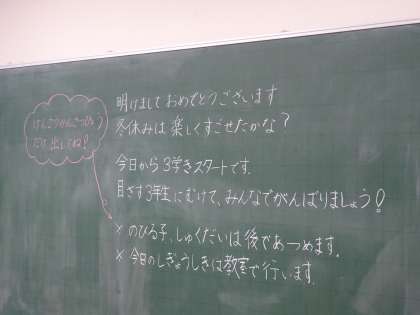 明けましておめでとうございます
冬休みは楽しくすごせたかな?
今日から3学きスタートです.
目ざす3年生にむけて、みんなでがんばりましょう!
× のびる子、しゅくだいは後であつめます.
× 今日のしぎょうしきは教室で行います.
だけ出してね!